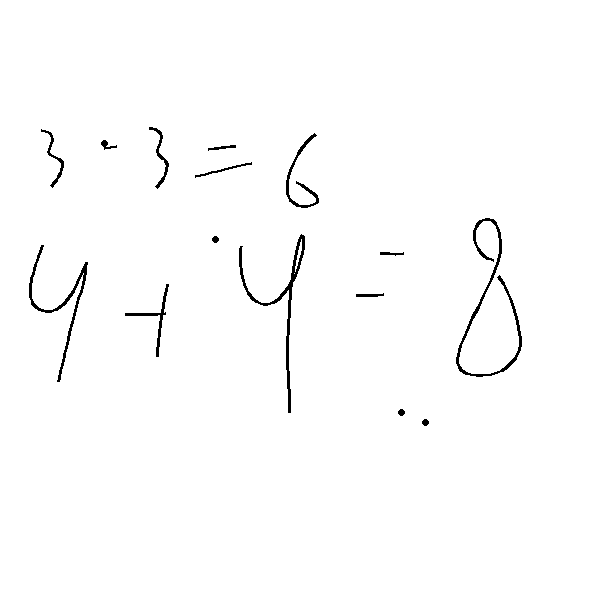 3 · 3 = 6
4 + 4 = 8